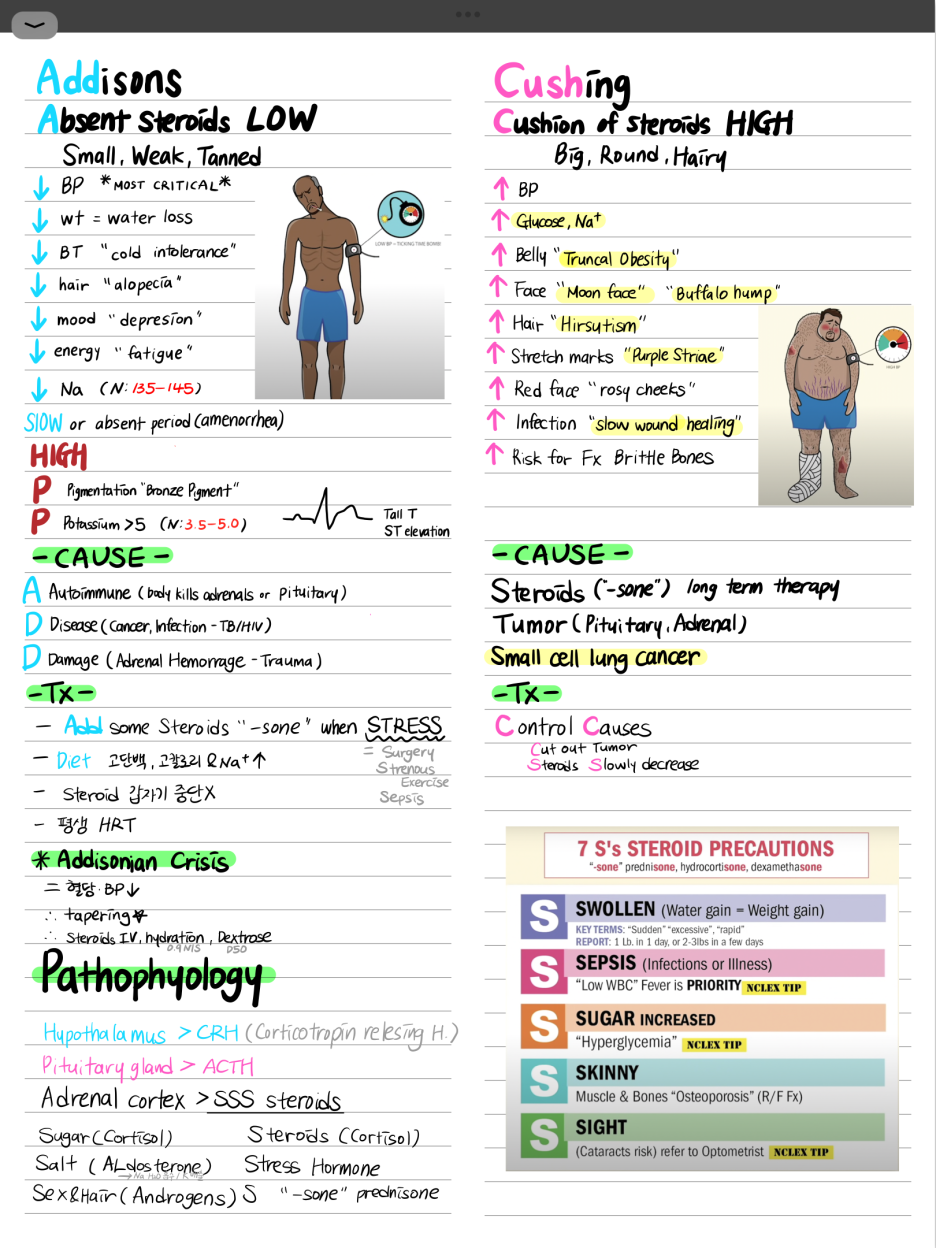 Addisons
Absent Steroids LOW
Small, Weak, Tanned
↓ BP *MOST CRITICAL*
↓ wt = water loss
↓ BT "cold intolerance"
↓ hair "alopecia"
↓ mood "depresion"
↓ energy "fatigue"
↓ Na (N: 135-145)
LOW BP = TICKING TIME BOMB!
SlOW or absent period (amenorrhea)
HIGH
P Pigmentation "Bronze Pigment"
P Potassium >5 (N: 3.5-5.0)
Tall T
ST elevation
- CAUSE -
A Autoimmune (body kills adrenals or pituitary)
D Disease (Cancer, Infection - TB/HIV)
D Damage (Adrenal Hemorrage - Trauma)
- Tx -
- Add some Steroids "-sone" when STRESS
= Surgery
Strenous
Exercise
Sepsis
- Diet 고단백, 고칼로리 & Na+ ↑
- Steroid 갑자기 중단X
- 평생 HRT
* Addisonian Crisis
= 혈당·BP↓
∴ tapering
∴ Steroids IV, hydration, Dextrose
0.9 N/S D50
Pathophyology
Hypothalamus > CRH (Corticotropin relesing H.)
Pituitary gland > ACTH
Adrenal cortex > SSS steroids
Sugar (Cortisol)
Salt (ALdosterone)
Sex&Hair (Androgens)
Steroids (Cortisol)
Stress Hormone
S "-sone" prednisone
Cushing
Cushion of steroids HIGH
Big, Round, Hairy
↑ BP
↑ Glucose, Na+
↑ Belly "Truncal Obesity"
↑ Face "Moon face" "Buffalo hump"
↑ Hair "Hirsutism"
↑ Stretch marks "Purple Striae"
↑ Red face "rosy cheeks"
↑ Infection "slow wound healing"
↑ Risk for Fx Brittle Bones
HIGH BP
- CAUSE -
Steroids ("-sone") long term therapy
Tumor (Pituitary, Adrenal)
Small cell lung cancer
- Tx -
Control Causes
Cut out Tumor
Steroids Slowly decrease
7 S's STEROID PRECAUTIONS
"-sone" prednisone, hydrocortisone, dexamethasone
S SWOLLEN (Water gain = Weight gain)
KEY TERMS: "Sudden" "excessive", "rapid"
REPORT: 1 Lb. in 1 day, or 2-3lbs in a few days
S SEPSIS (Infections or Illness)
"Low WBC" Fever is PRIORITY NCLEX TIP
S SUGAR INCREASED
"Hyperglycemia" NCLEX TIP
S SKINNY
Muscle & Bones "Osteoporosis" (R/F Fx)
S SIGHT
(Cataracts risk) refer to Optometrist NCLEX TIP